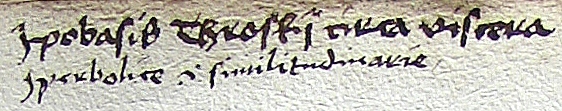 Jpobasis Throskij circa viscera
Jperbolice i similitudinarie